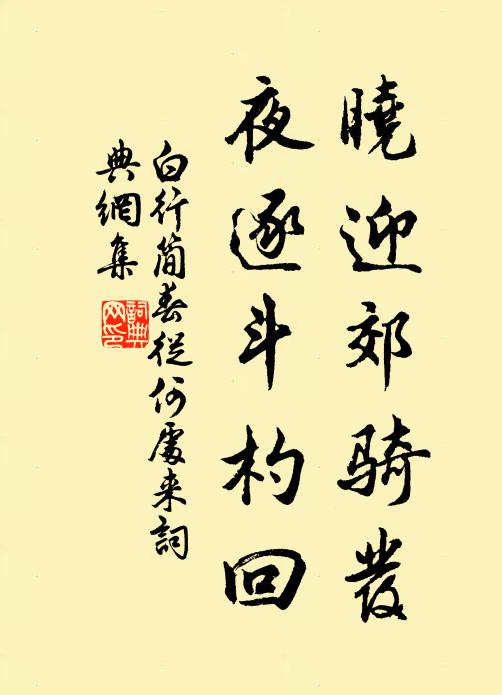 曉迎郊騎發
夜逐斗杓回
白行簡春從何處来詞
典網集
詞典網印